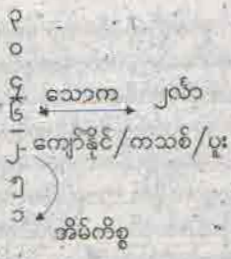 ၃
၀
၄
၆ သောက
၂ ကျော်နိုင်/ကသစ်/ပူး
၅
၁
အိမ်ကိစ္စ